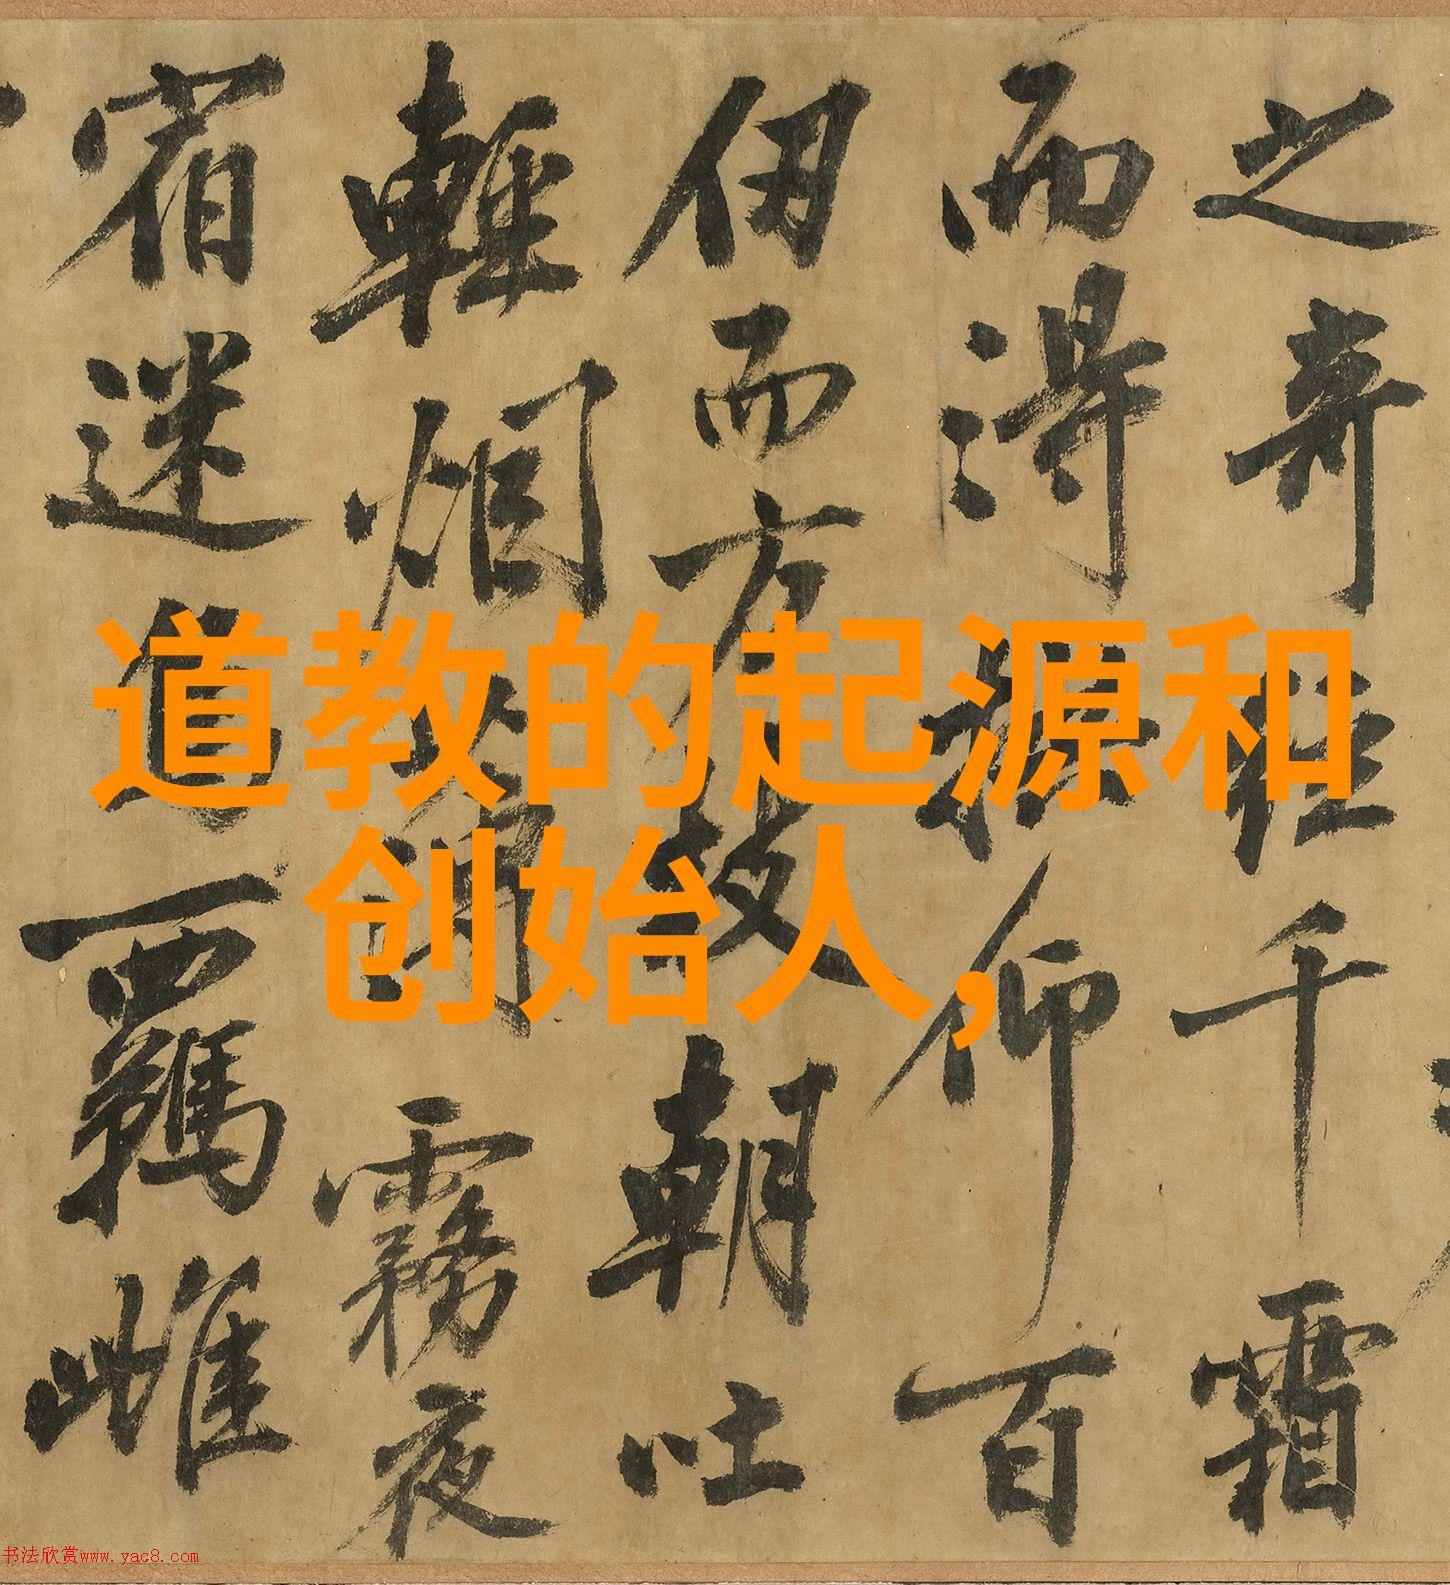 之奇經千霜
而得仰百
仞而方朝吐
輕烟霧夜
宿迷羈雌
道教的起源和
创始人,
书法欣赏www.yac8.com